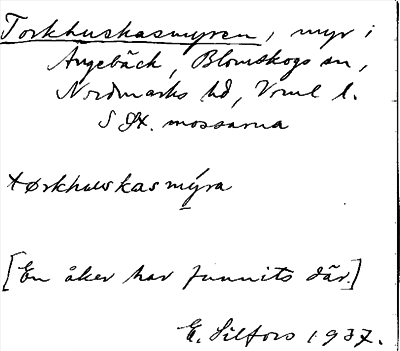 Torkhuskasmyren, myr i
Angebäck, Blomskogs sn,
Nordmarks hd, Vrml l.
S St. mossarna
tørkhuskasmýra
[En åker har funnits där.]
E. Silfors 1937.